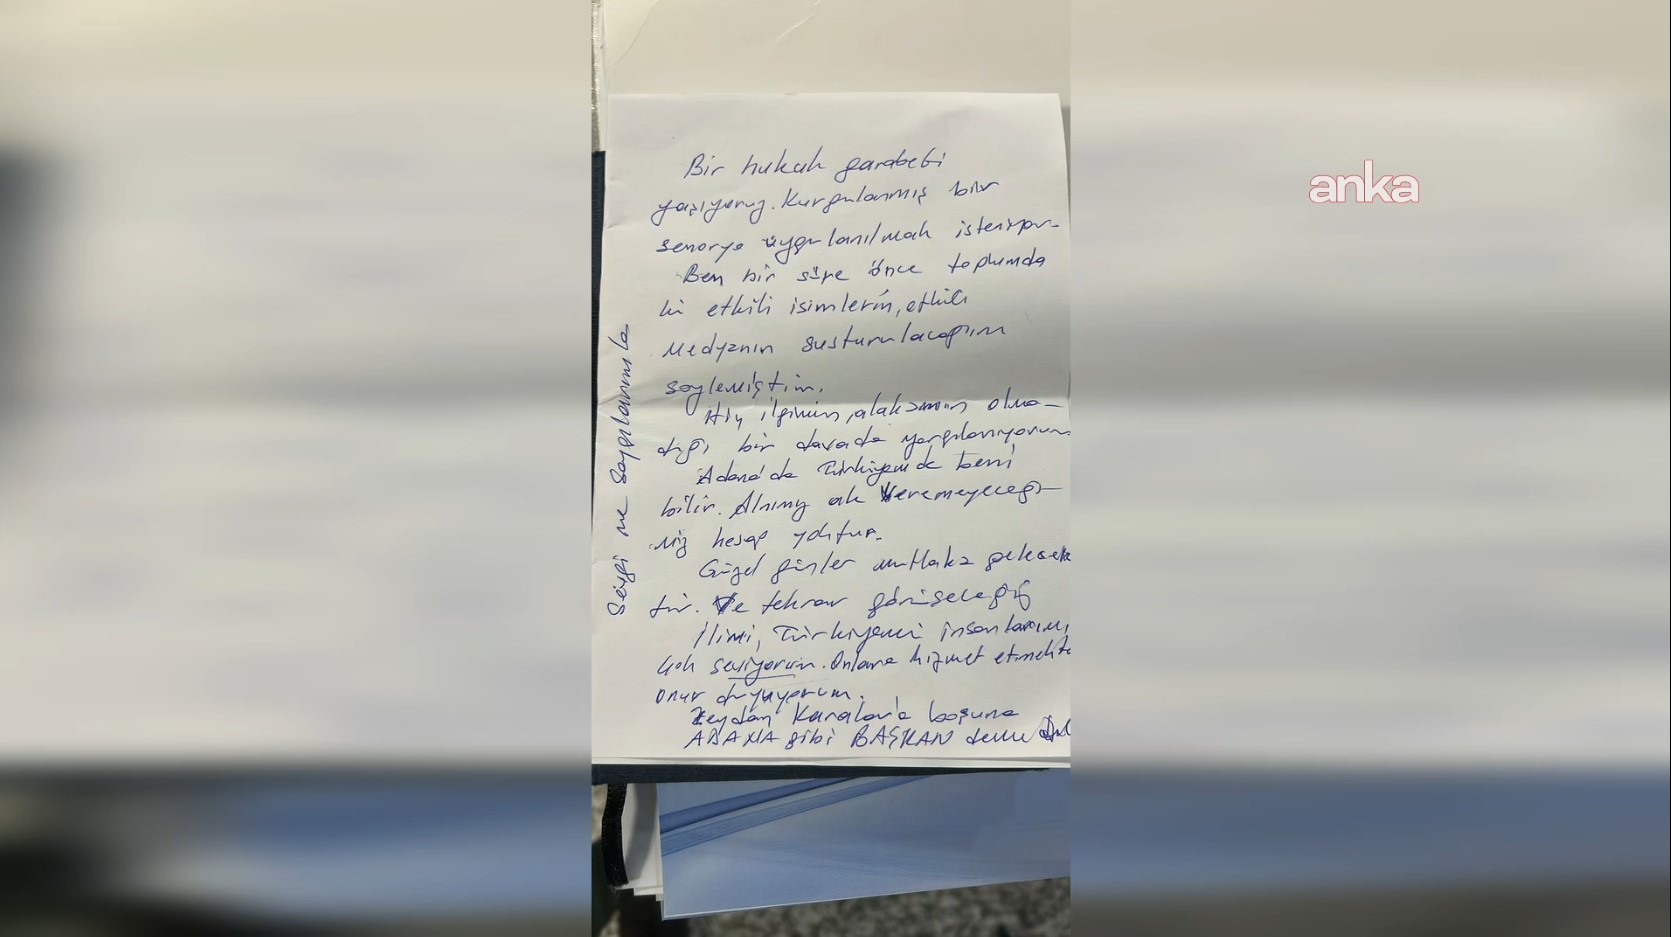 Bir hukuk garabeti
yaşıyoruz. Kurgulanmış bir
senaryo uygulanılmak isteniyor.
Ben bir süre önce toplumda
ki etkili isimlerin, etkili
Medyanın susturulacağını
söylemiştim.
Hiç ilgimin, alakamın olma-
dığı bir davada yargılanıyorum
Adana'da Türkiyem'de beni
bilir. Alnımız ak Veremeyeceği-
miz hesap yoktur.
Güzel günler mutlaka gelecek
tir. Ve tekrar görüşeceğiz
İlimi, Türkiyemi insanlarımı
çok seviyorum. Onlara hizmet etmekte
onur duyuyorum.
Zeydan Karalar'a boşuna
ADANA gibi BAŞKAN
Sevgi ve Saygılarımla
anka